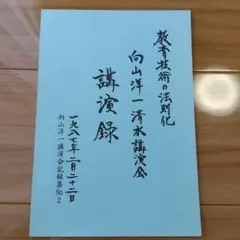 教育技術の法則化
向山洋一清水講演会
講演録
一九八七年二月二十二日
向山洋一講演会記録集No.2